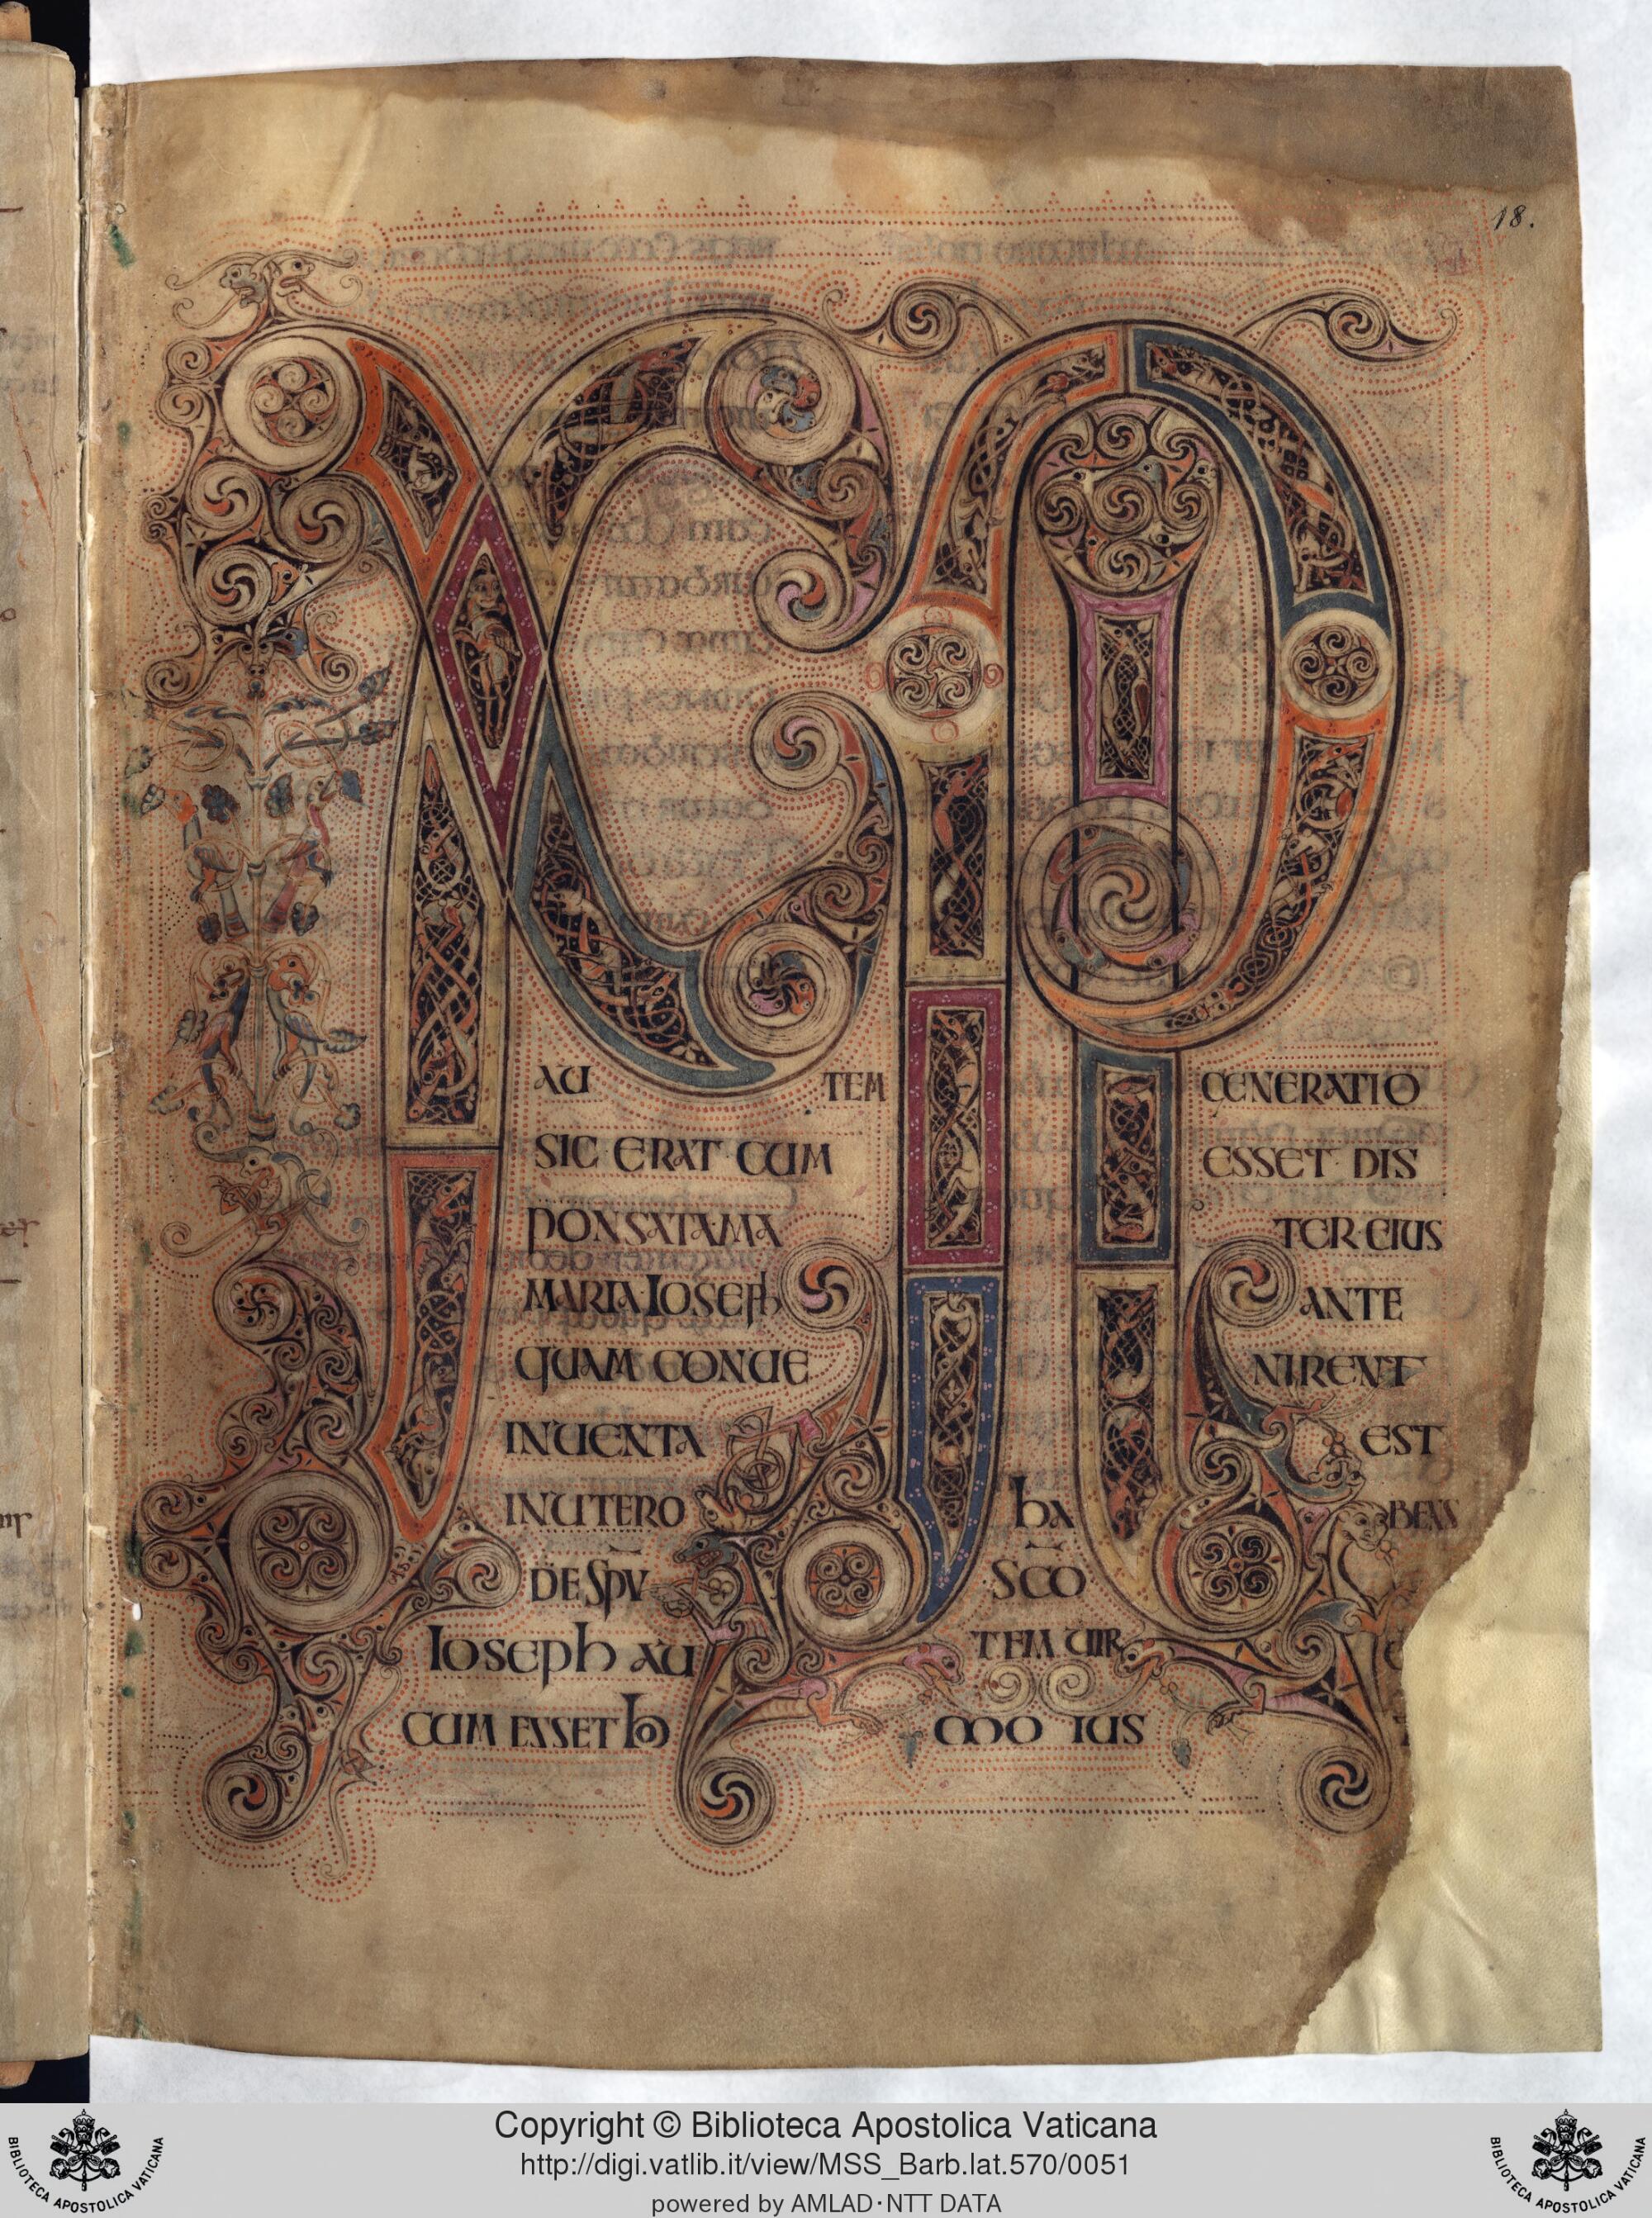 18.
XPI
AU TEM GENERATIO
SIC ERAT CUM ESSET DIS
PONSATA MA TER EIUS
MARIA IOSEPh ANTE
QUAM CONUE NIRENT
INUENTA EST
INUTERO hA BENS
DE SPU SCO
IOSEPh AU TEM UIR
CUM ESSET hO MO IUS
Copyright © Biblioteca Apostolica Vaticana
http://digi.vatlib.it/view/MSS_Barb.lat.570/0051
powered by AMLAD·NTT DATA
BIBLIOTECA APOSTOLICA VATICANA
BIBLIOTECA APOSTOLICA VATICANA